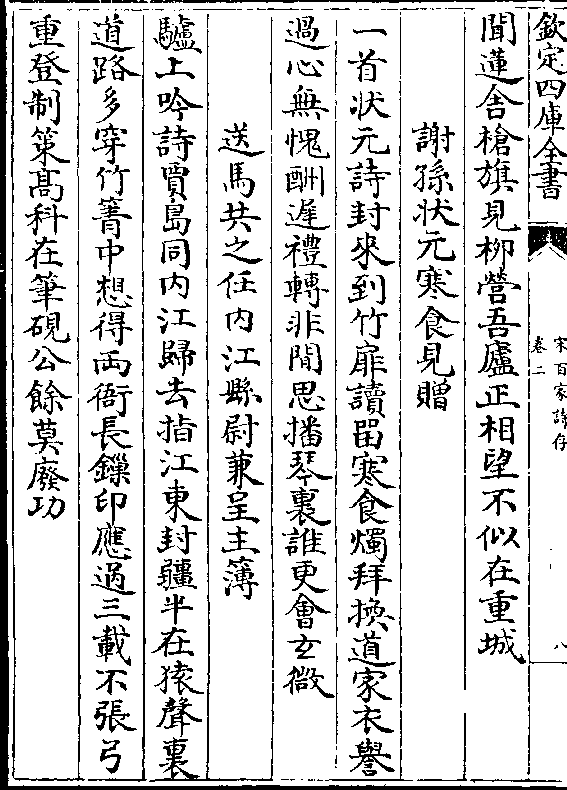 欽定四庫全書
宋百家詩存
卷二
八
聞蓮舍槍旗見栁營吾廬正相望不似在重城
謝孫狀元寒食見贈
一首狀元詩封來到竹扉讀留寒食燭拜換道家衣譽
過心無愧酬遲禮轉非閒思播琴裏誰更會玄微
送馬共之任内江縣尉兼呈主簿
驢上吟詩賈島同内江歸去指江東封疆半在猿聲裏
道路多穿竹箐中想得两衙長鏁印應過三載不張弓
重登制策髙科在筆硯公餘莫廢功